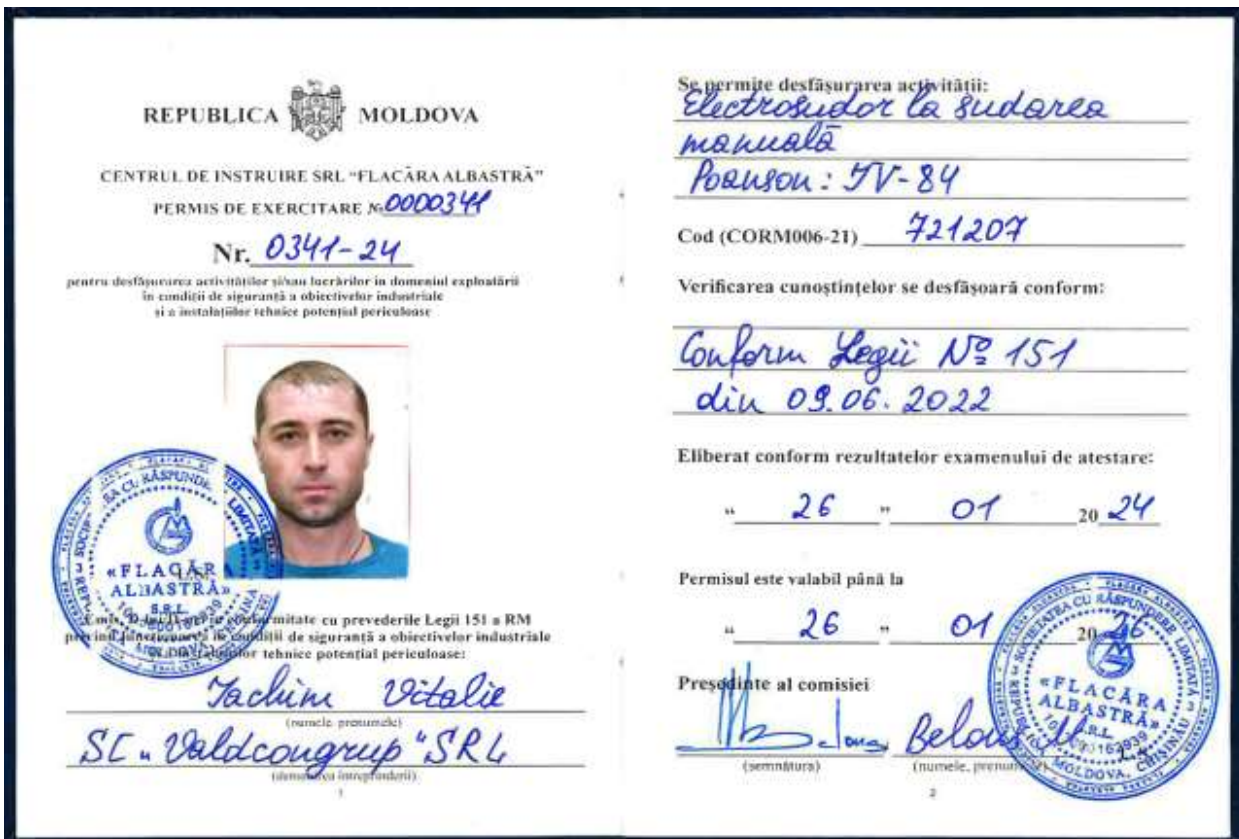 REPUBLICA MOLDOVA
CENTRUL DE INSTRUIRE SRL "FLACĂRA ALBASTRĂ"
PERMIS DE EXERCITARE № 0000341
Nr. 0341-24
pentru desfășurarea activităților și/sau lucrărilor în domeniul exploatării
în condiții de siguranță a obiectivelor industriale
și a instalațiilor tehnice potențial periculoase
«FLACĂRA
ALBASTRĂ»
S.R.L.
conformitate cu prevederile Legii 151 a RM
privind funcționarea în condiții de siguranță a obiectivelor industriale
tehnice potențial periculoase:
Iachim Vitalie
(numele, prenumele)
SC "Valdcongrup" SRL
(denumirea întreprinderii)
1
Se permite desfășurarea activității:
Electrosudor la sudarea
manuală
Poanson: IV-84
Cod (CORM006-21) 721207
Verificarea cunoștințelor se desfășoară conform:
Conform Legii № 151
din 09.06.2022
Eliberat conform rezultatelor examenului de atestare:
" 26 " 01 20 24
Permisul este valabil până la
" 26 " 01 20 26
Președinte al comisiei
Belous M.
(semnătura) (numele, prenumele)
«FLACĂRA
ALBASTRĂ»
S.R.L.
MOLDOVA, CHIȘINĂU
2